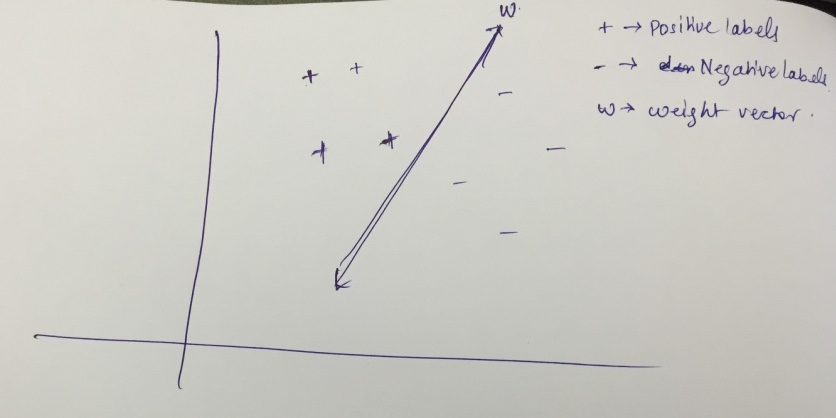 w.
+ → Positive labels
- → Negative labels
w → weight vector.
+ +
+ +
-
-
-
-